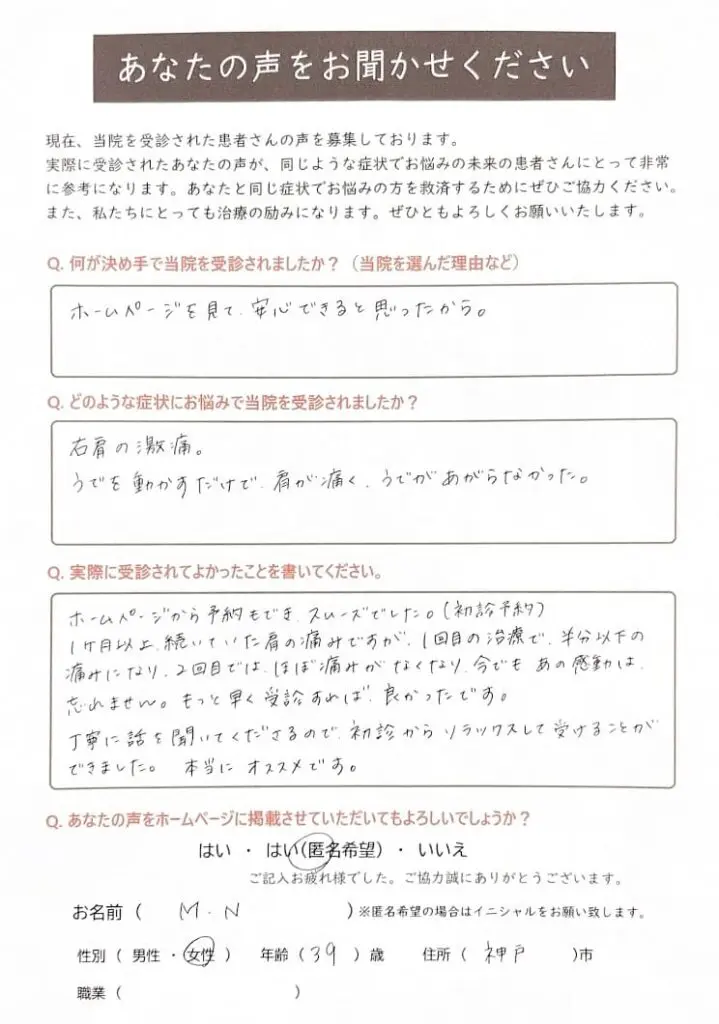 あなたの声をお聞かせください
現在、当院を受診された患者さんの声を募集しております。
実際に受診されたあなたの声が、同じような症状でお悩みの未来の患者さんにとって非常
に参考になります。あなたと同じ症状でお悩みの方を救済するためにぜひご協力ください。
また、私たちにとっても治療の励みになります。ぜひともよろしくお願いいたします。
Q. 何が決め手で当院を受診されましたか？（当院を選んだ理由など）
ホームページを見て、安心できると思ったから。
Q. どのような症状にお悩みで当院を受診されましたか？
右肩の激痛。
うでを動かすだけで、肩が痛く、うでがあがらなかった。
Q. 実際に受診されてよかったことを書いてください。
ホームページから予約もでき、スムーズでした。(初診予約)
1ヶ月以上、続いていた肩の痛みですが、1回目の治療で、半分以下の
痛みになり、2回目では、ほぼ痛みがなくなり、今でも あの感動は、
忘れません。もっと早く受診すれば、良かったです。
丁寧に話を聞いてくださるので、初診から リラックスして受けることが
できました。 本当に オススメです。
Q. あなたの声をホームページに掲載させていただいてもよろしいでしょうか？
はい ・ はい(匿名希望) ・ いいえ
ご記入お疲れ様でした。ご協力誠にありがとうございます。
お名前 ( M.N ) ※匿名希望の場合はイニシャルをお願い致します。
性別 ( 男性 ・ 女性 ) 年齢 ( 39 ) 歳 住所 ( 神戸 )市
職業 ( )